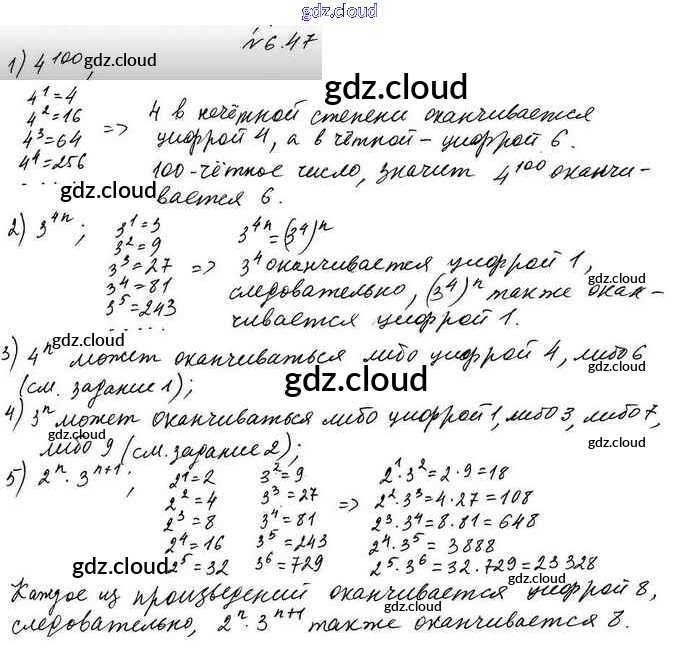 gdz.cloud
№6.47
1) 4^100; gdz.cloud
4^1=4
4^2=16
4^3=64
4^4=256
. . . . .
=> 4 в нечётной степени оканчивается
цифрой 4, а в чётной – цифрой 6.
100-чётное число, значит 4^100 оканчи-
вается 6.
gdz.cloud
gdz.cloud
gdz.cloud
2) 3^4n;
3^1=3
3^2=9
3^3=27
3^4=81
3^5=243
. . . . .
=>
3^4n=(3^4)^n
3^4 оканчивается цифрой 1,
следовательно, (3^4)^n также окан-
чивается цифрой 1.
gdz.cloud
gdz.cloud
3) 4^n может оканчиваться либо цифрой 4, либо 6
(см. задание 1);
gdz.cloud
gdz.cloud
4) 3^n может оканчиваться либо цифрой 1, либо 3, либо 7,
либо 9 (см. задание 2);
gdz.cloud
gdz.cloud
5) 2^n · 3^n+1;
2^1=2
2^2=4
2^3=8
2^4=16
2^5=32
3^2=9
3^3=27
3^4=81
3^5=243
3^6=729
=>
2^1·3^2=2·9=18
2^2·3^3=4·27=108
2^3·3^4=8·81=648
2^4·3^5=3888
2^5·3^6=32·729=23328
gdz.cloud
gdz.cloud
gdz.cloud
Каждое из произведений оканчивается цифрой 8,
следовательно, 2^n·3^n+1 также оканчивается 8.
gdz.cloud
gdz.cloud
gdz.cloud